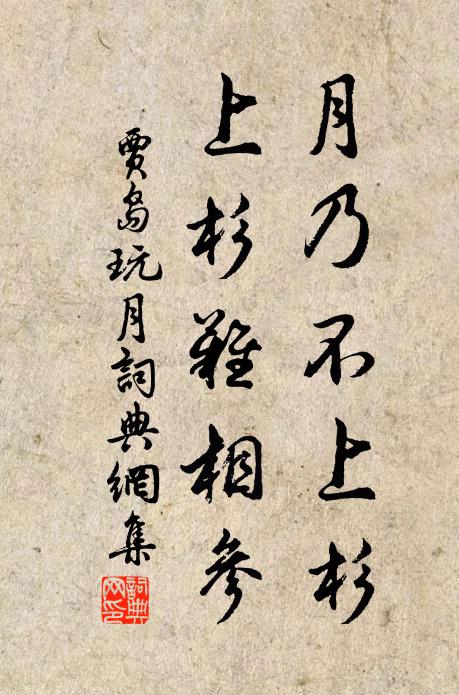 月乃不上杉
上杉難相參
賈島玩月詞典網集
詞典
网印